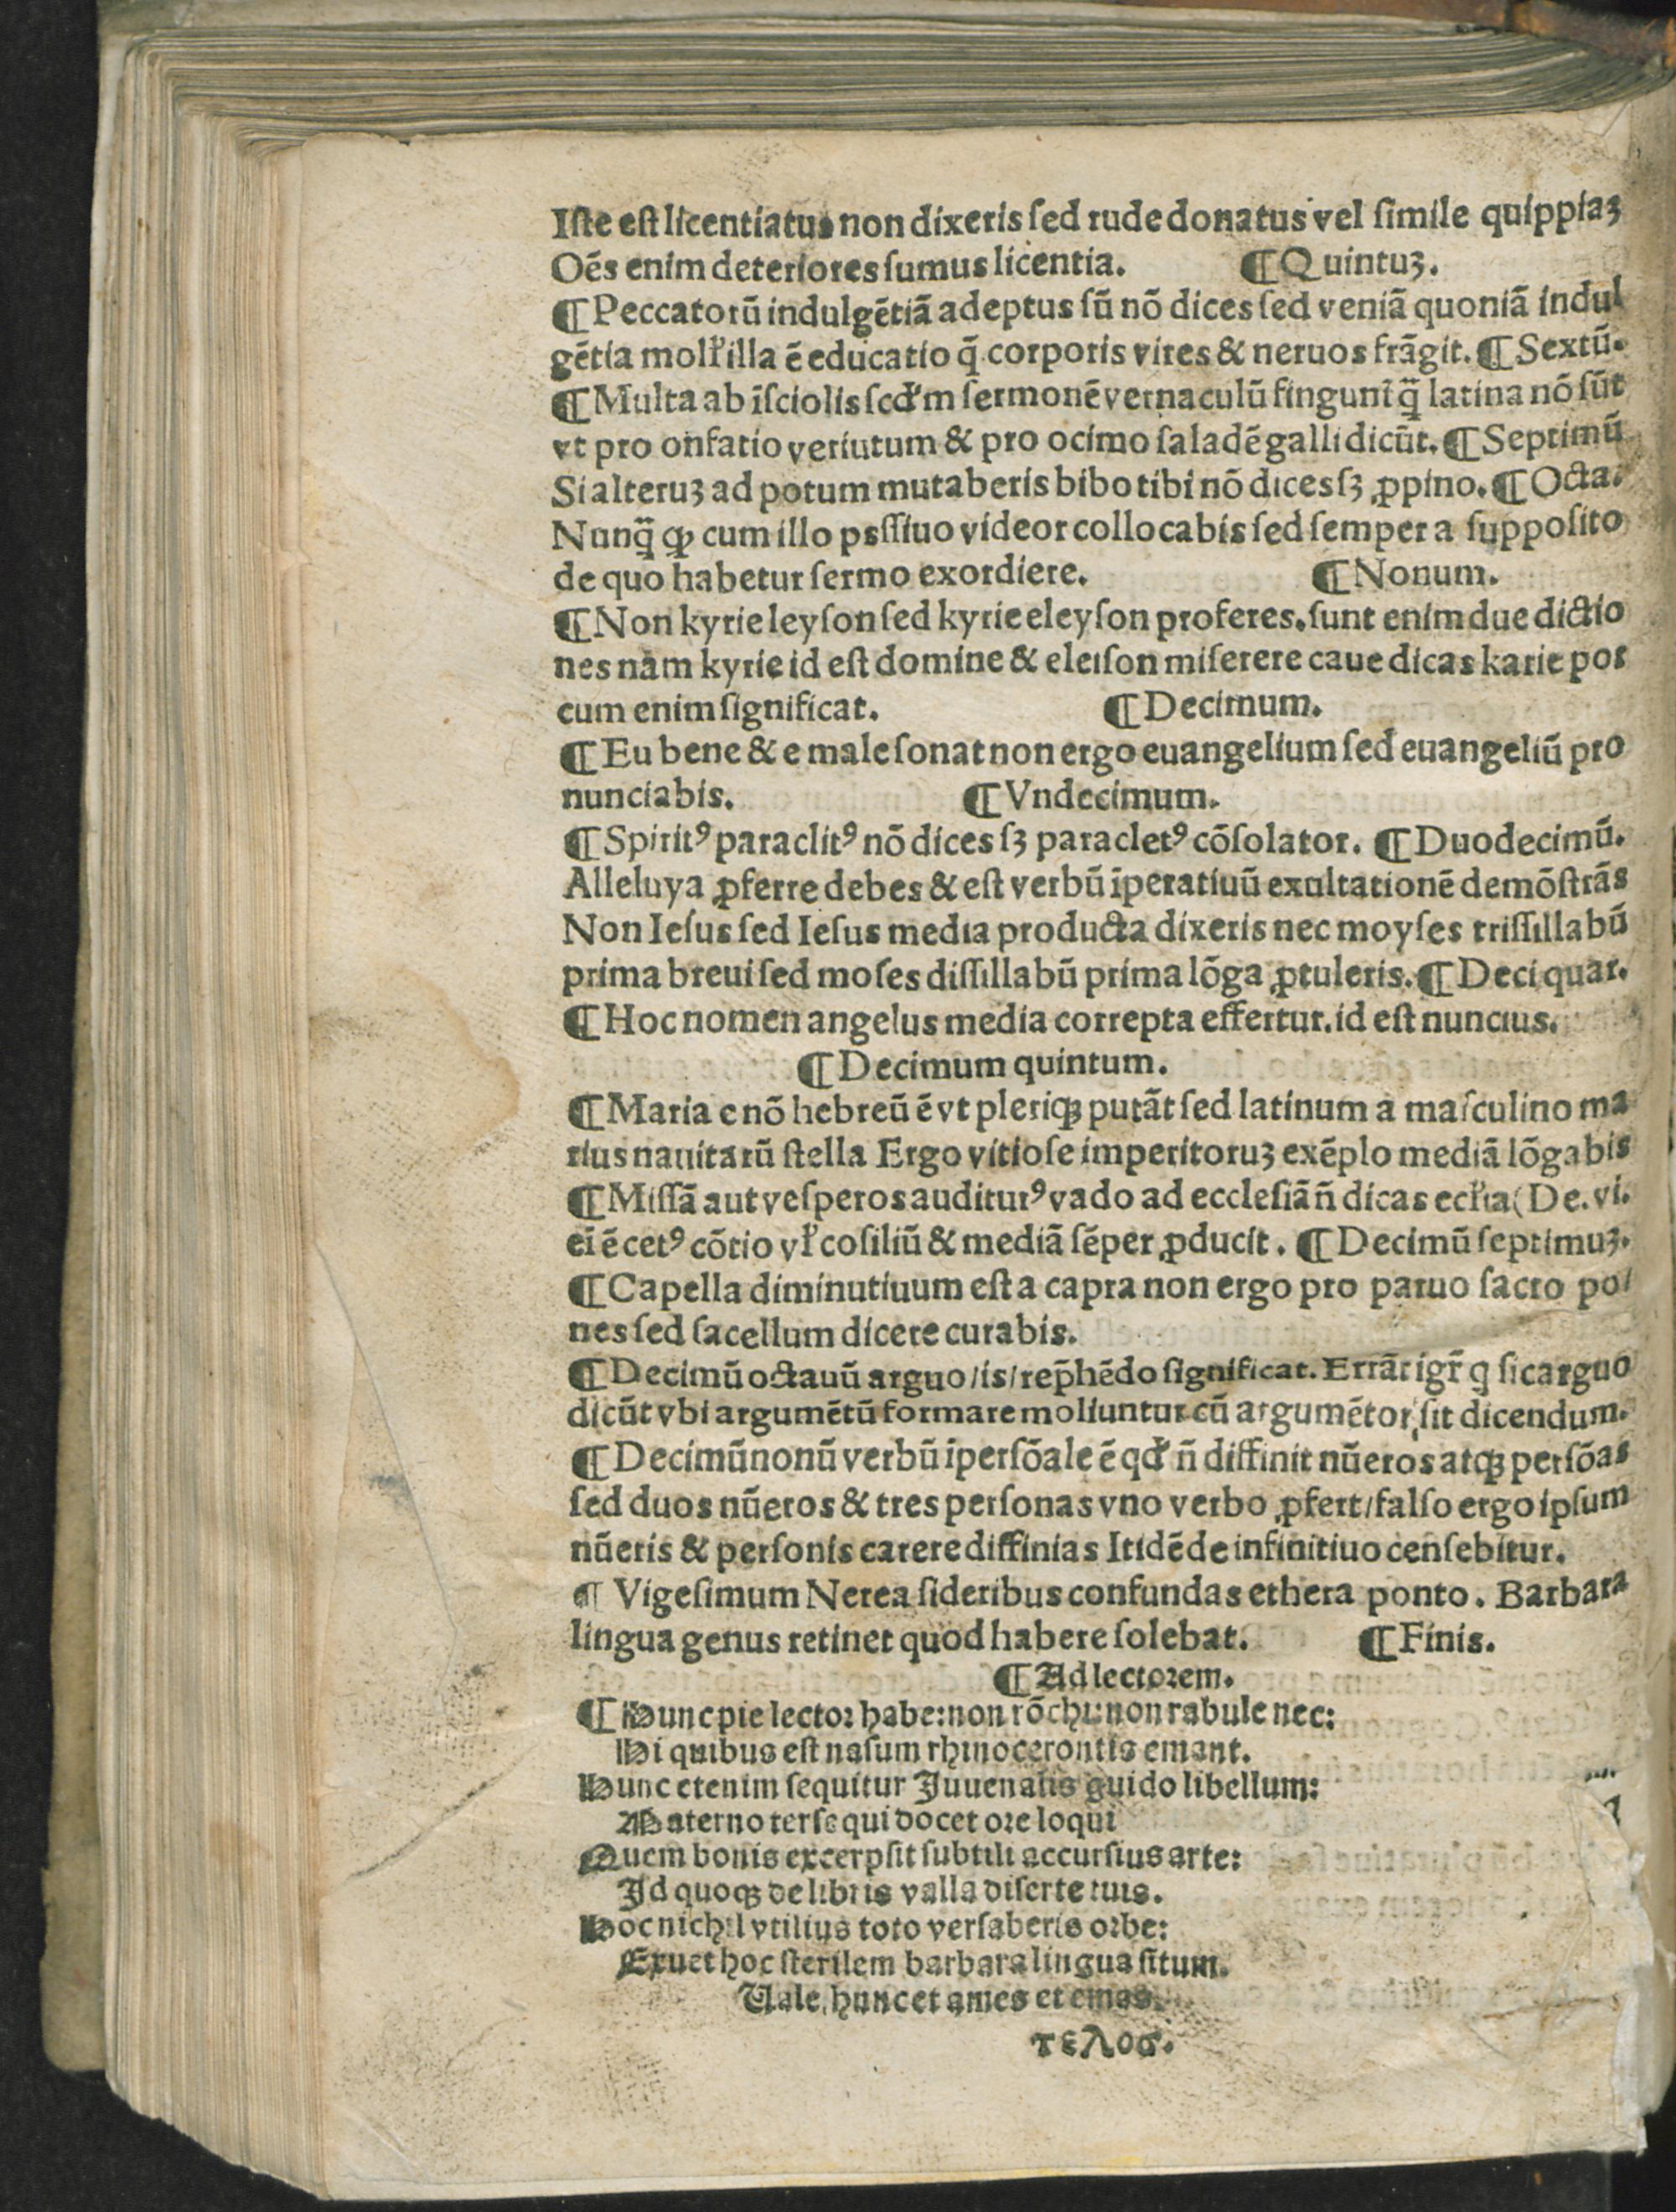 Iſte eſt licentiatus non dixeris ſed rude donatus vel ſimile quippiaꝫ
Oēs enim deteriores ſumus licentia. ¶ Quintuꝫ.
¶ Peccatorū indulgētiā adeptus ſū nō dices ſed veniā quoniā indul
gētia moll'illa ē educatio q̄ corporis vires & neruos frāgit. ¶ Sextū.
¶ Multa ab īſciolis ſcd'm ſermonē vernaculū fingunt q̄ latina nō ſūt
vt pro onfatio veriutum & pro ocimo ſaladē galli dicūt. ¶ Septimū
Si alteruꝫ ad potum mutaberis bibo tibi nō dices ſꝫ ꝓpino. ¶ Octa.
Nunq̄ ꝙ cum illo psſſiuo videor collocabis ſed ſemper a ſuppoſito
de quo habetur ſermo exordiere. ¶ Nonum.
¶ Non kyrieleyſon ſed kyrie eleyſon proferes. ſunt enim due dictio
nes nam kyrie id eſt domine & eleiſon miſerere caue dicas karie por
cum enim ſignificat. ¶ Decimum.
¶ Eu bene & e male ſonat non ergo euangelium ſed euangeliū pro
nunciabis. ¶ Vndecimum.
¶ Spiritꝰ paraclitꝰ nō dices ſꝫ paracletꝰ cōſolator. ¶ Duodecimū.
Alleluya ꝓferre debes & eſt verbū īperatiuū exultationē demōſtrās
Non Ieſus ſed Ieſus media producta dixeris nec moyſes triſſillabū
prima breui ſed moſes diſſillabū prima lōga ꝓtuleris. ¶ Deci quar.
¶ Hoc nomen angelus media correpta effertur. id eſt nuncius.
¶ Decimum quintum.
¶ Maria e nō hebreū ē vt pleriqꝫ putāt ſed latinum a maſculino ma
rius nauitarū ſtella Ergo vitioſe imperitoruꝫ exēplo mediā lōgabis
¶ Miſſā aut veſperos auditurꝰ vado ad eccleſiā n̄ dicas eccl'ia (De. vi.
ei ē cetꝰ cōtio vl' coſiliū & mediā ſēper ꝓducit. ¶ Decimū ſeptimuꝫ.
¶ Capella diminutiuum eſt a capra non ergo pro paruo ſacro po/
nes ſed ſacellum dicere curabis.
¶ Decimū octauū arguo/is/rep̄hēdo ſignificat. Errāt igr̄ q ſic arguo
dicūt vbi argumētū formare moliuntur cū argumētor ſit dicendum.
¶ Decimūnonū verbū īperſōale ē qd' n̄ diffinit nūeros atqꝫ perſōas
ſed duos nūeros & tres perſonas vno verbo ꝓfert/falſo ergo ipſum
nūeris & perſonis carere diffinias Itidē de infinitiuo cenſebitur.
¶ Vigeſimum Nerea ſideribus confundas ethera ponto. Barbara
lingua genus retinet quod habere ſolebat. ¶ Finis.
¶ Ad lectorem.
¶ Hunc pie lector habe: non rōchi: non rabule nec:
Hi quibus eſt naſum rhinocerontis emant.
Hunc etenim ſequitur Juuenalis guido libellum:
Materno terſe qui docet ore loqui
Quem bonis excerpſit ſubtili accurſius arte:
Id quoqꝫ de libris valla diſerte tuis.
Hoc nichil vtilius toto verſaberis orbe:
Exuet hoc ſterilem barbara lingua ſitum.
Vale, hunc et ames et emas.
τελοσ.